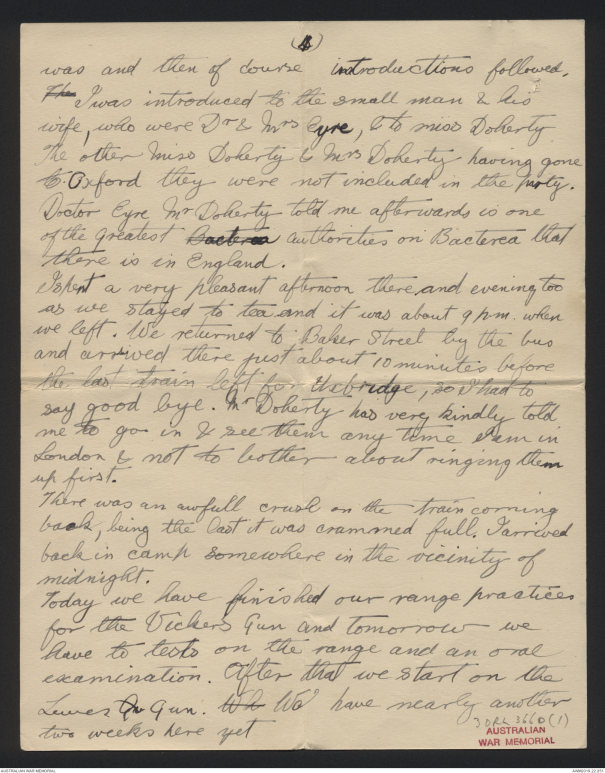 (4)
was and then of course introductions followed.
The I was introduced to the small man & his
wife, who were Dr & Mrs Eyre, & to miss Doherty
The other Miss Doherty & Mrs Doherty having gone
to Oxford they were not included in the party.
Doctor Eyre Mr Doherty told me afterwards is one
of the greatest Bacterea authorities on Bacterea that
there is in England.
I spent a very pleasant afternoon there and evening too
as we stayed to tea and it was about 9 pm. when
we left. We returned to Baker Street by the bus
and arrived there just about 10 minutes before
the last train left for Uxbridge, so I had to
say good bye. Mr Doherty has very kindly told
me to go in & see them any time I'm in
London & not to bother about ringing them
up first.
There was an awfull crush on the train coming
back, being the last it was crammed full. I arrived
back in camp somewhere in the vicinity of
midnight.
Today we have finished our range practices
for the Vickers Gun and tomorrow we
have to tests on the range and an oral
examination. After that we start on the
Lewes Gun. Wh We have nearly another
two weeks here yet
3DRL 3660(1)
AUSTRALIAN
WAR MEMORIAL
AUSTRALIAN WAR MEMORIAL